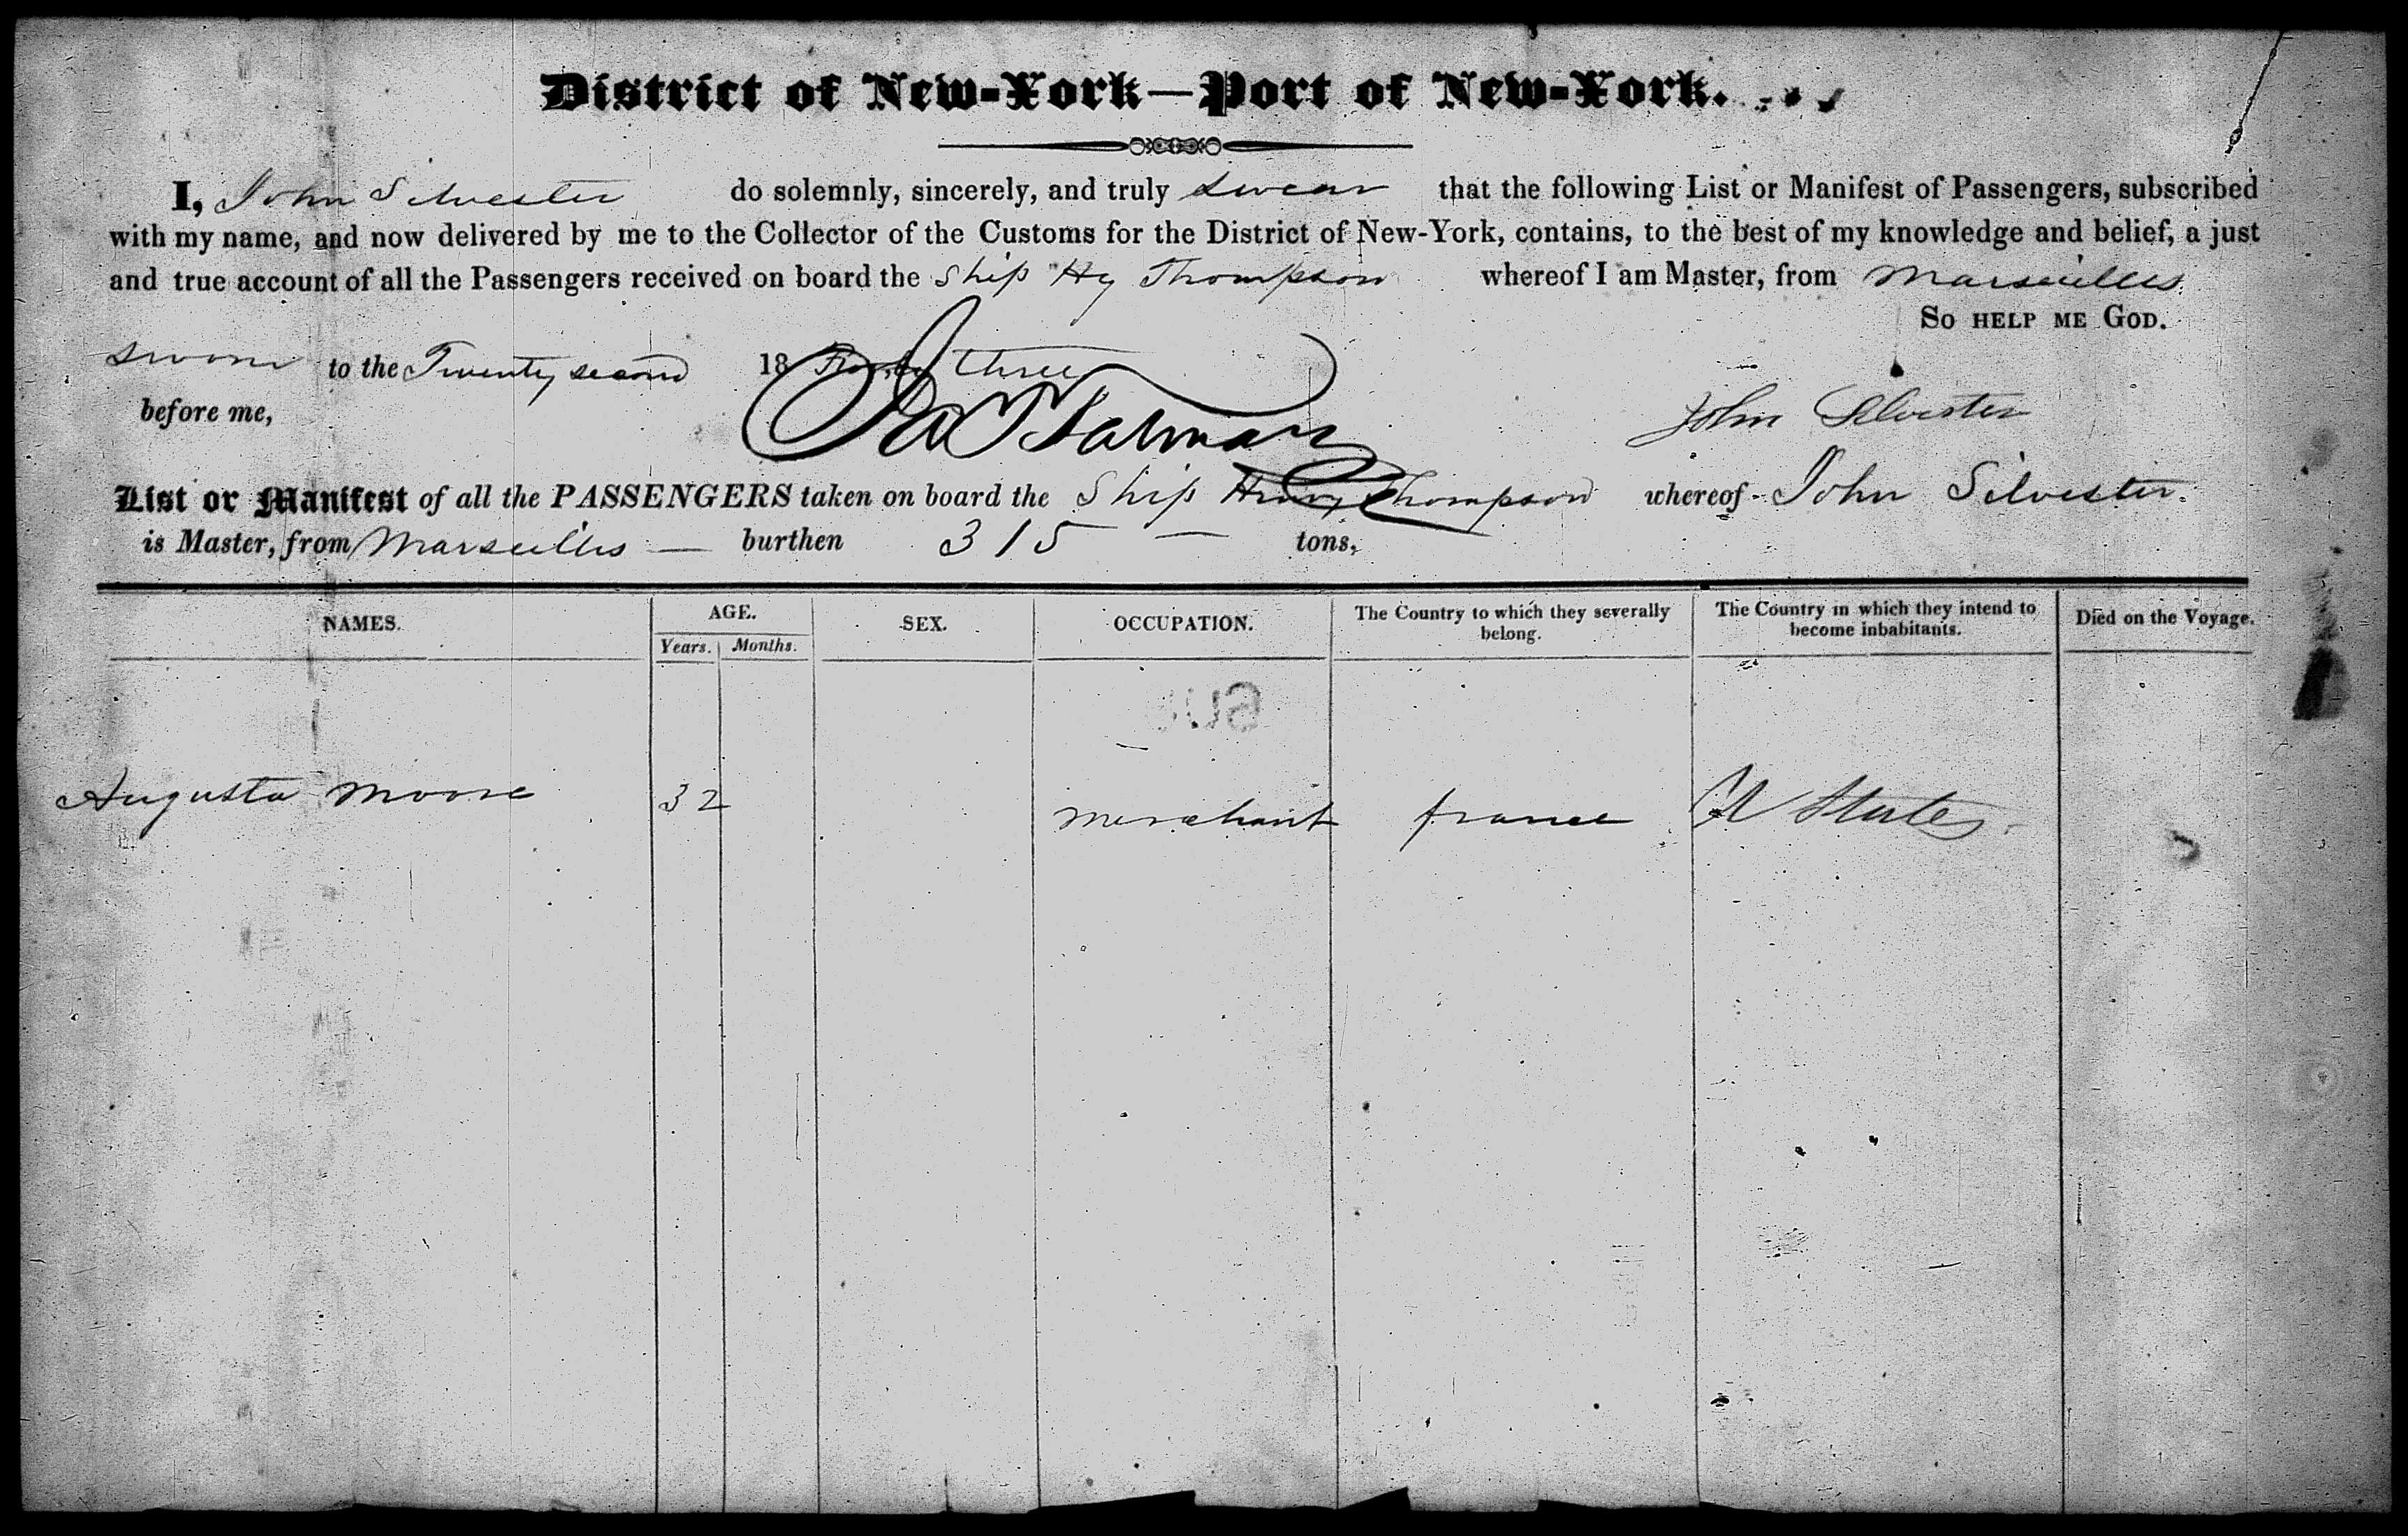 District of New-York—Port of New-York.
I, John Silvester do solemnly, sincerely, and truly swear that the following List or Manifest of Passengers, subscribed
with my name, and now delivered by me to the Collector of the Customs for the District of New-York, contains, to the best of my knowledge and belief, a just
and true account of all the Passengers received on board the Ship Hy Thompson whereof I am Master, from Marseilles
So help me God.
Sworn to the Twenty second 18 Forty three
before me,
John Silvester
List or Manifest of all the PASSENGERS taken on board the Ship Henry Thompson whereof John Silvester
is Master, from Marseilles — burthen 315 — tons,
NAMES. AGE. SEX. OCCUPATION. The Country to which they severally belong. The Country in which they intend to become inhabitants. Died on the Voyage.
Years. Months.
Augusta Moore 32 merchant france U States